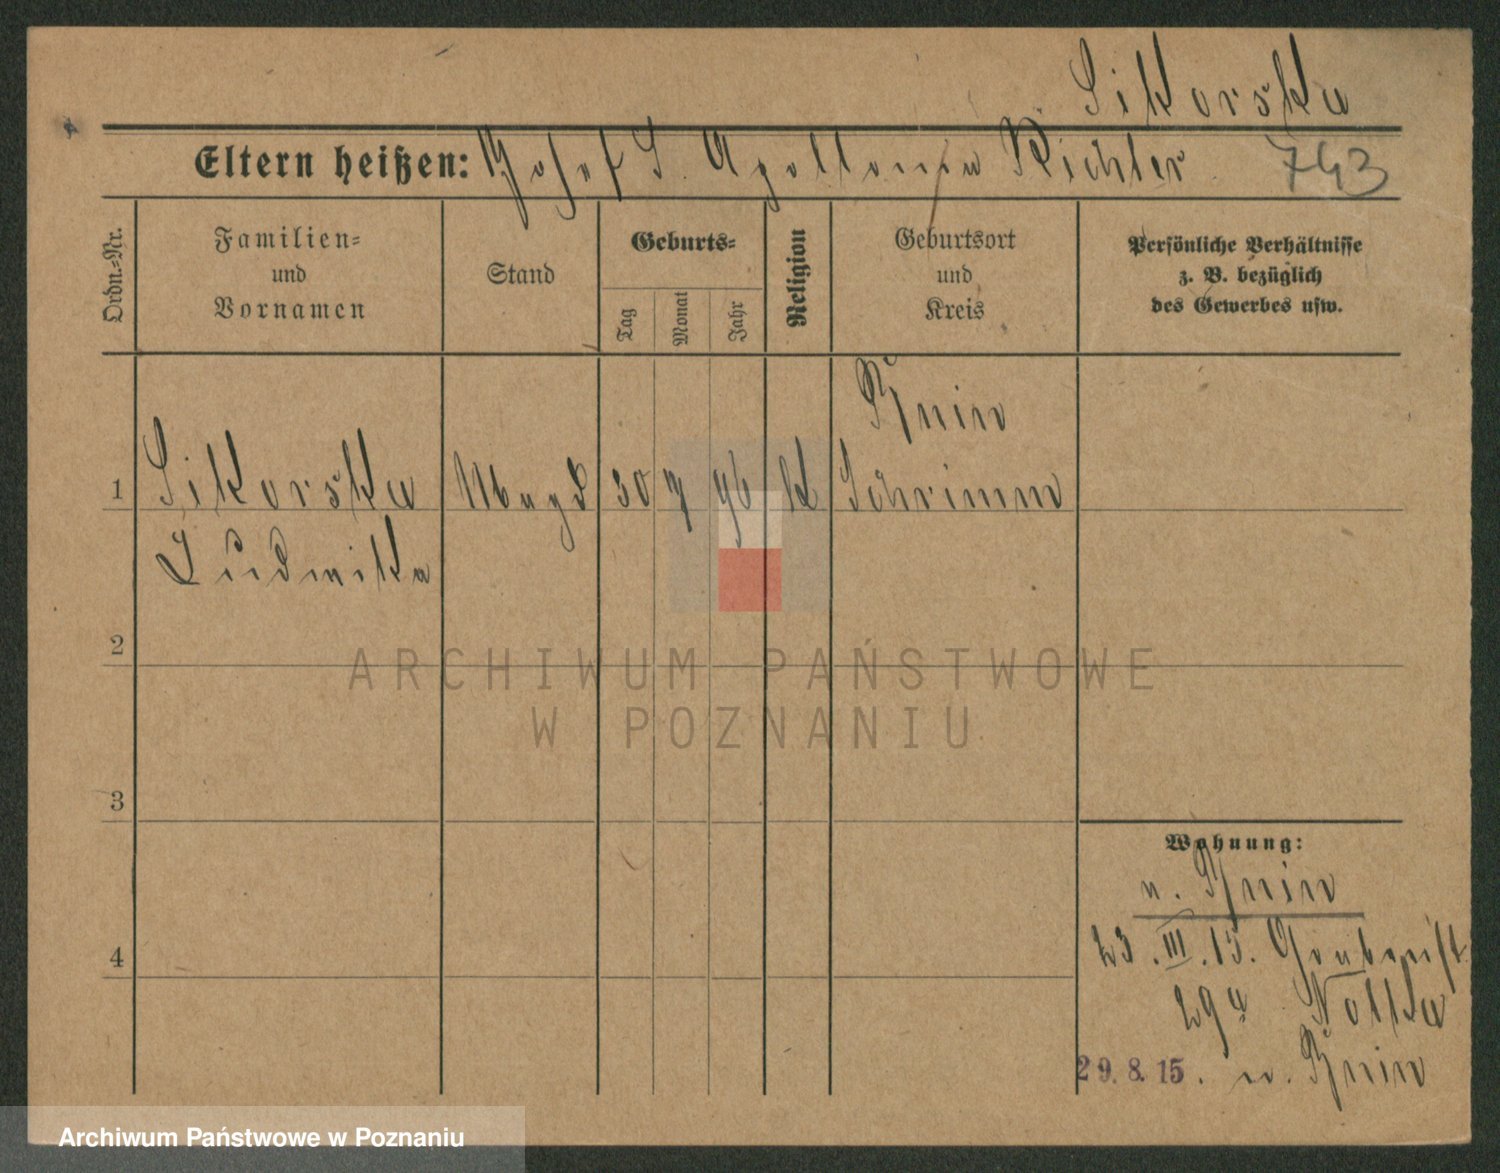 Sikorska
Eltern heißen: Josef S. Apollonia Richter 743
Ordn.=Nr.
Familien=
und
Vornamen
Stand
Geburts=
Tag
Monat
Jahr
Religion
Geburtsort
und
Kreis
Persönliche Verhältnisse
z. B. bezüglich
des Gewerbes usw.
Bnin
1 Sikorska Magd 30 7 96 k Schrimm
Ludwika
2
3
4
Wohnung:
n. Bnin
23. III. 15.
29a
29.8.15. n. Bnin
ARCHIWUM PAŃSTWOWE
W POZNANIU
Archiwum Państwowe w Poznaniu